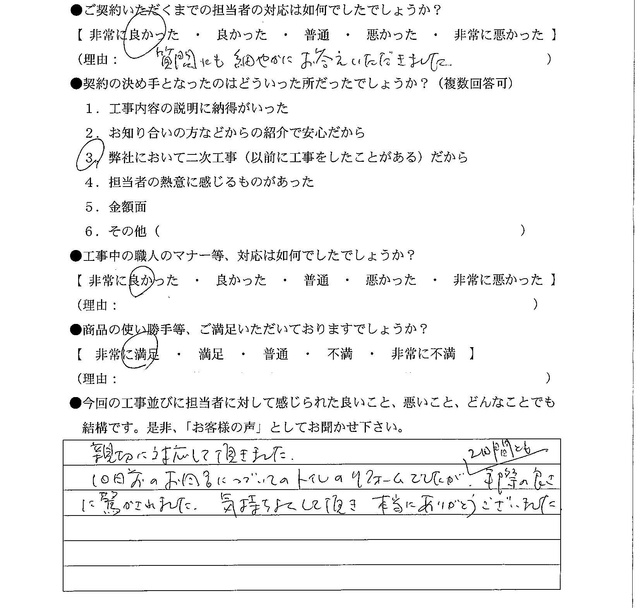 ●ご契約いただくまでの担当者の対応は如何でしたでしょうか？
【 非常に良かった ・ 良かった ・ 普通 ・ 悪かった ・ 非常に悪かった 】
（理由： 質問にも細やかにお答えいただきました。 ）
●契約の決め手となったのはどういった所だったでしょうか？（複数回答可）
１．工事内容の説明に納得がいった
２．お知り合いの方などからの紹介で安心だから
３．弊社において二次工事（以前に工事をしたことがある）だから
４．担当者の熱意に感じるものがあった
５．金額面
６．その他（ ）
●工事中の職人のマナー等、対応は如何でしたでしょうか？
【 非常に良かった ・ 良かった ・ 普通 ・ 悪かった ・ 非常に悪かった 】
（理由： ）
●商品の使い勝手等、ご満足いただいておりますでしょうか？
【 非常に満足 ・ 満足 ・ 普通 ・ 不満 ・ 非常に不満 】
（理由： ）
●今回の工事並びに担当者に対して感じられた良いこと、悪いこと、どんなことでも
結構です。是非、「お客様の声」としてお聞かせ下さい。
親切に対応して頂きました。
2日間とも
10日前のお風呂につづいてのトイレのリフォームでしたが、手際の良さ
に驚かされました。気持ちよくして頂き 本当にありがとうございました